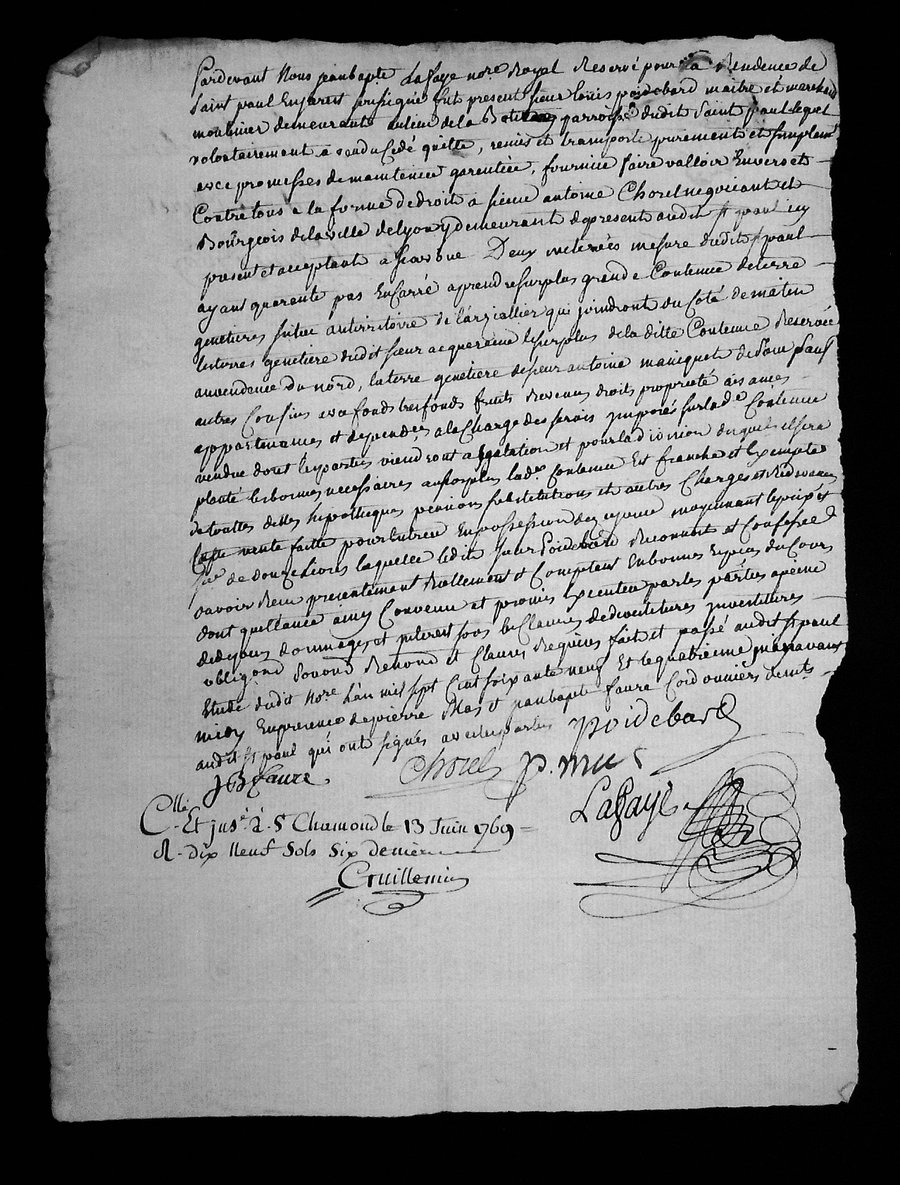 Pardevant Nous jeanbapte Lafaye nore Royal Reservé pour la Residence de
Saint paul Enjarest soussigné fut present sieur louis poidebard maitre et marchand
moulinier demeurant au lieu de la parroisse dudit Saint paul lequel
volontairement a vendu Cedé quitté, remis et transporté purement et simplemt
avec promesses de maintenir garentir, fournir faire valloir Envers et
Contre tous a la forme de droit a sieur antoine Chorel negociant et
Bourgeois de la ville de Lyon y demeurant de present audit st paul icy
present et acceptant a scavoir Deux meterées mesure dudit st paul
ayant quarente pas En Carré a prendre sur plus grande Contenue de terre
genetieres située au territoire de l'arzallier qui joindront du Coté de matin
les terres genetiere dudit sieur acquereur le surplus de la ditte Contenue Reservée
au vendeur du nord, la terre genetiere de sieur antoine maniquet de Soir Sauf
autres Confins avec fonds tresfonds fruits Revenus droits proprieté aisances
appartenances et dependces a la Charge des servis imposés sur lade Contenue
vendue dont les parties viendront a Egalation et pour la division duquel il sera
planté les bornes necessaires au surplus lade Contenue Est franche et Exempte
de touttes dettes hypotheques pensions substitutions et autres Charges et Redevances
Cette vente faitte pour Entrer En possession dez ce jour moyennant le prix et
de douze Livres laquelle ledit sieur Poidebard Reconnoit et Confesse
avoir Receu presentement Reellement et Comptant En bonnes Espèces du Cours
dont quittance ainsy Convenu et promis executer par les parties a peine
de depens dommages et interest sous les Clauses de devestitures investitures
obligaons Soumons Renons et Clauses Requises fait et passé audit st paul
Etude dudit nore L'an mil sept Cent soixante neuf Et le quatrieme juin avant
midy En presence de pierre Mas et jeanbapte faure Cordonniers demts
audit st paul qui ont signés avec les parties poidebard
JB faure Chorel p. mas
Lafaye
Collé Et insé à St Chamond le 13 Juin 1769
R. dix Neuf Sols Six deniers
Cruillemin